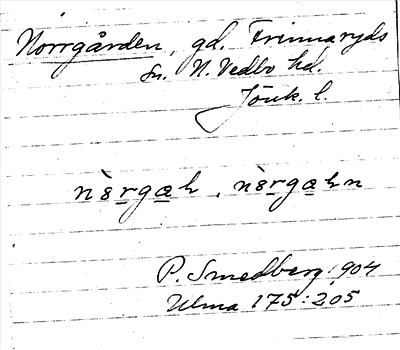 Norrgården, gd. Frinnaryds
sn. N. Vedbo hd.
Jönk. l.
n`ɞrgah, n`ɞrgahn
P. Smedberg 1904
Ulma 175:205